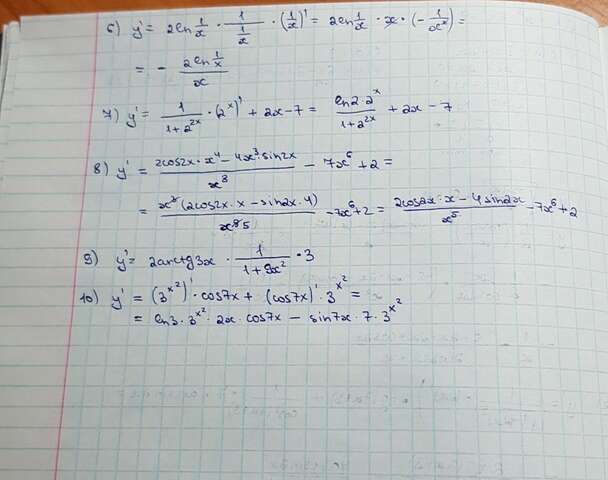 6) y' = 2ln 1/x · 1/(1/x) · (1/x)' = 2ln 1/x · x · (- 1/x²) =
= - (2ln 1/x)/x
7) y' = 1/(1+2^2x) · (2^x)' + 2x - 7 = (ln2·2^x)/(1+2^2x) + 2x - 7
8) y' = (2cos2x·x⁴ - 4x³·sin2x)/x⁸ - 7x⁶ + 2 =
= x³(2cos2x·x - sin2x·4)/x⁸5 - 7x⁶+2 = (2cos2x·x - 4sin2x)/x⁵ - 7x⁶+2
9) y' = 2arctg3x · 1/(1+9x²) · 3
10) y' = (3^x²)' · cos7x + (cos7x)' · 3^x² =
= ln3·3^x²·2x·cos7x - sin7x·7·3^x²